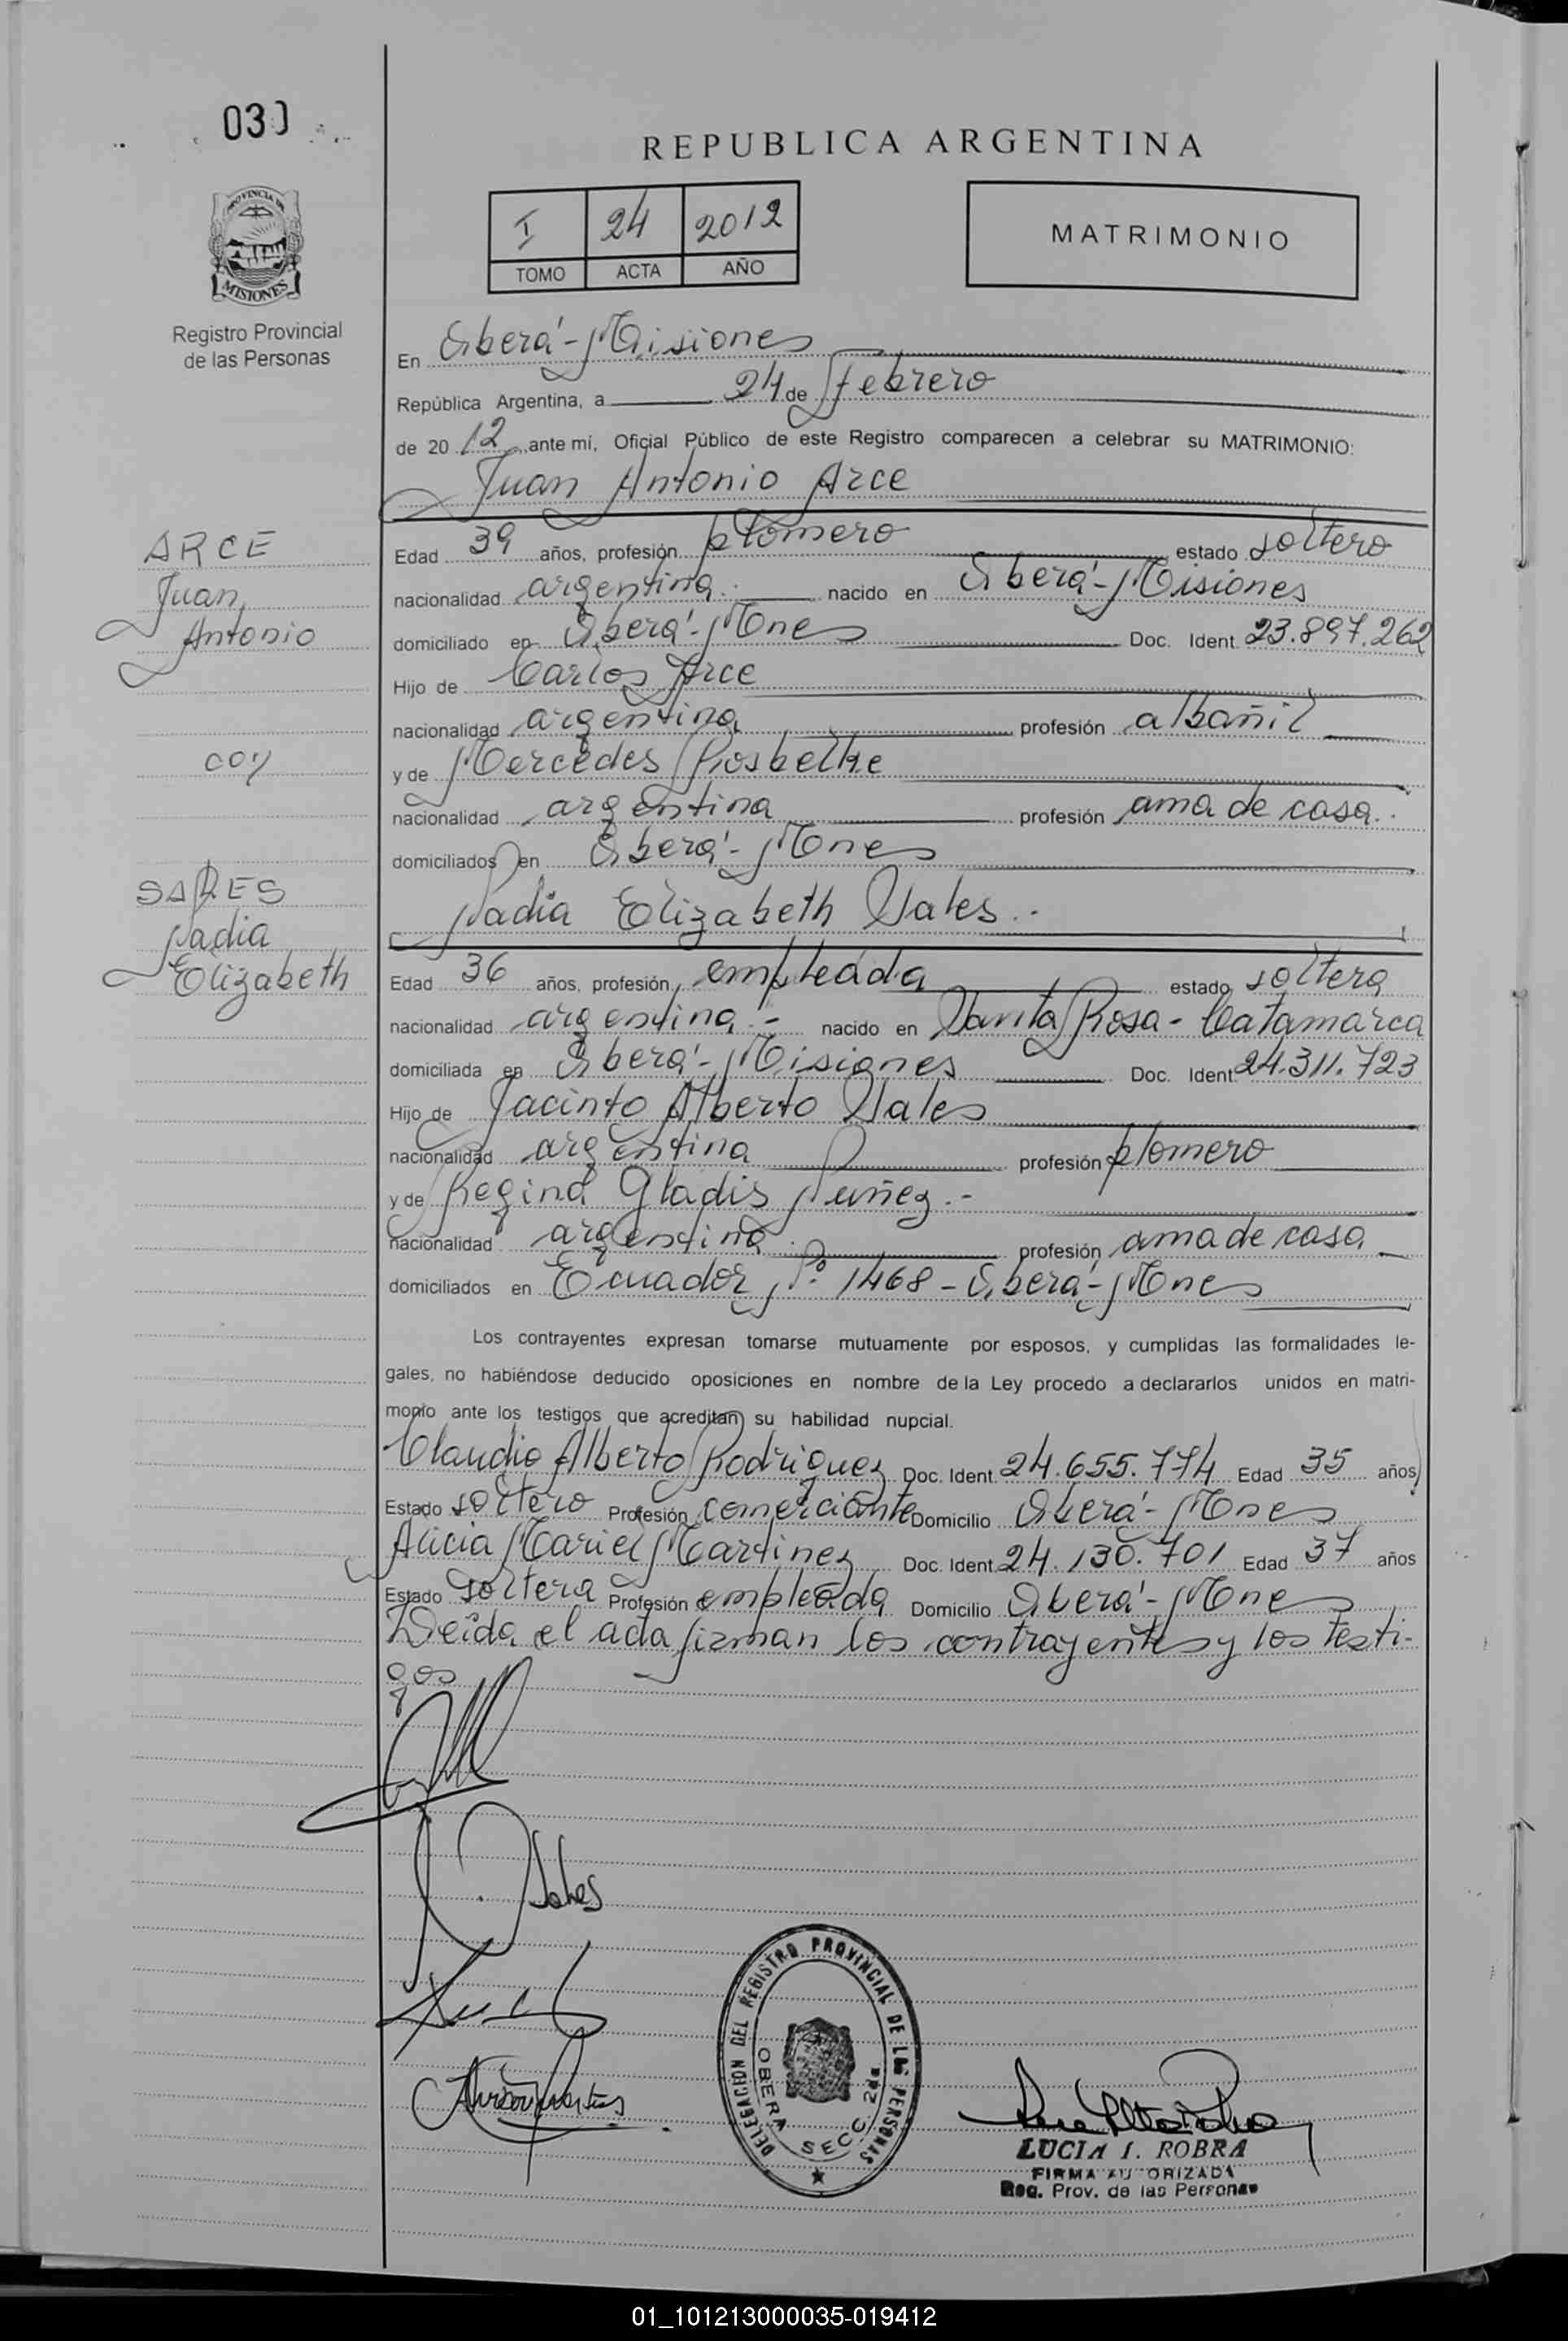 030
REPUBLICA ARGENTINA
I 24 2012
TOMO ACTA AÑO
MATRIMONIO
PROVINCIA DE
MISIONES
Registro Provincial
de las Personas
En Oberá - Misiones
República Argentina, a 24 de Febrero
de 20 12 ante mí, Oficial Público de este Registro comparecen a celebrar su MATRIMONIO:
Juan Antonio Arce
ARCE
Juan
Antonio
con
SALES
Nadia
Elizabeth
Edad 39 años, profesión plomero estado soltero
nacionalidad argentina.- nacido en Oberá - Misiones
domiciliado en Oberá - Mnes Doc. Ident. 23.897.262
Hijo de Carlos Arce
nacionalidad argentina profesión albañil
y de Mercedes
nacionalidad argentina profesión ama de casa.-
domiciliados en Oberá - Mnes
Nadia Elizabeth Sales.-
Edad 36 años, profesión empleada estado soltera
nacionalidad argentina.- nacido en Santa Rosa - Catamarca
domiciliada en Oberá - Misiones Doc. Ident. 24.311.723
Hijo de Jacinto Alberto Sales
nacionalidad argentina profesión plomero
y de Regina Gladis Nuñez.-
nacionalidad argentina profesión ama de casa
domiciliados en Ecuador Nº 1468 - Oberá - Mnes
Los contrayentes expresan tomarse mutuamente por esposos, y cumplidas las formalidades le-
gales, no habiéndose deducido oposiciones en nombre de la Ley procedo a declararlos unidos en matri-
monio ante los testigos que acreditan su habilidad nupcial.
Claudio Alberto Rodriguez Doc. Ident. 24.655.774 Edad 35 años
Estado soltero Profesión comerciante Domicilio Oberá - Mnes
Alicia Mariel Martinez Doc. Ident. 24.130.701 Edad 37 años
Estado soltera Profesión empleada Domicilio Oberá - Mnes
Leída el acta firman los contrayentes y los testi-
gos
Sales
DELEGACION DEL REGISTRO PROVINCIAL DE LAS PERSONAS
OBERA SECC. 2da
LUCIA I. ROBRA
FIRMA AUTORIZADA
Reg. Prov. de las Personas
01_101213000035-019412